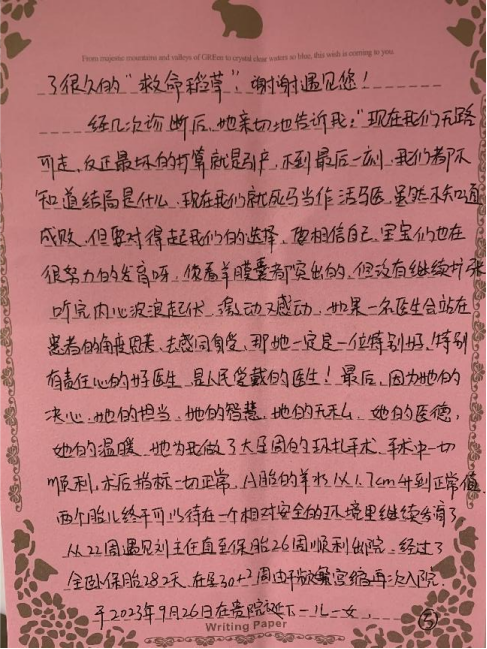 From majestic mountains and valleys of GREen to crystal clear waters so blue, this wish is coming to you
了很久的“救命稻草”，谢谢遇见您！
经几次诊断后，她亲切地告诉我：“现在我们无路
可走，反正最坏的打算就是引产，不到最后一刻，我们都不
知道结局是什么，现在我们就死马当作活马医，虽然不知道
成败，但要对得起我们的选择，要相信自己，里宝们也在
很努力的发育呀，你看羊膜囊都突出的，但没有继续扩张
听完内心波浪起伏，激动又感动，如果一名医生会站在
患者的角度思考，去感同身受，那她一定是一位特别好！特别
有责任心的好医生，是人民受戴的医生！最后，因为她的
决心，她的担当，她的智慧，她的无私，她的医德，
她的温暖，她为我做了大孕周的环扎手术，手术中一切
顺利，术后指标一切正常，A胎的羊水从1.7cm升到正常值，
两个胎儿终于可以待在一个相对安全的环境里继续孕育了
从22周遇见刘主任直至保胎26周顺利出院，经过了
全卧保胎28.2天，在孕30+2周由于频繁宫缩再次入院，
于2023年9月26日在贵院诞下一儿一女，
③
Writing Paper